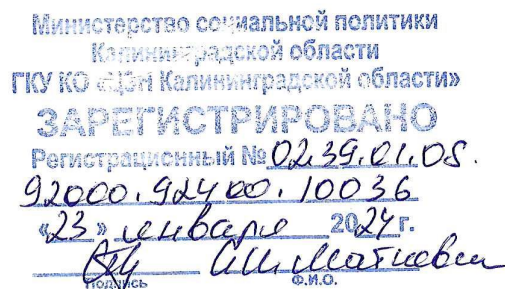 Министерство социальной политики
Калининградской области
ГКУ КО «ЦЗН Калининградской области»
ЗАРЕГИСТРИРОВАНО
Регистрационный № 02.39.01.05.
92000.92400.10036
«23» января 2024 г.
Подпись Ф.И.О.